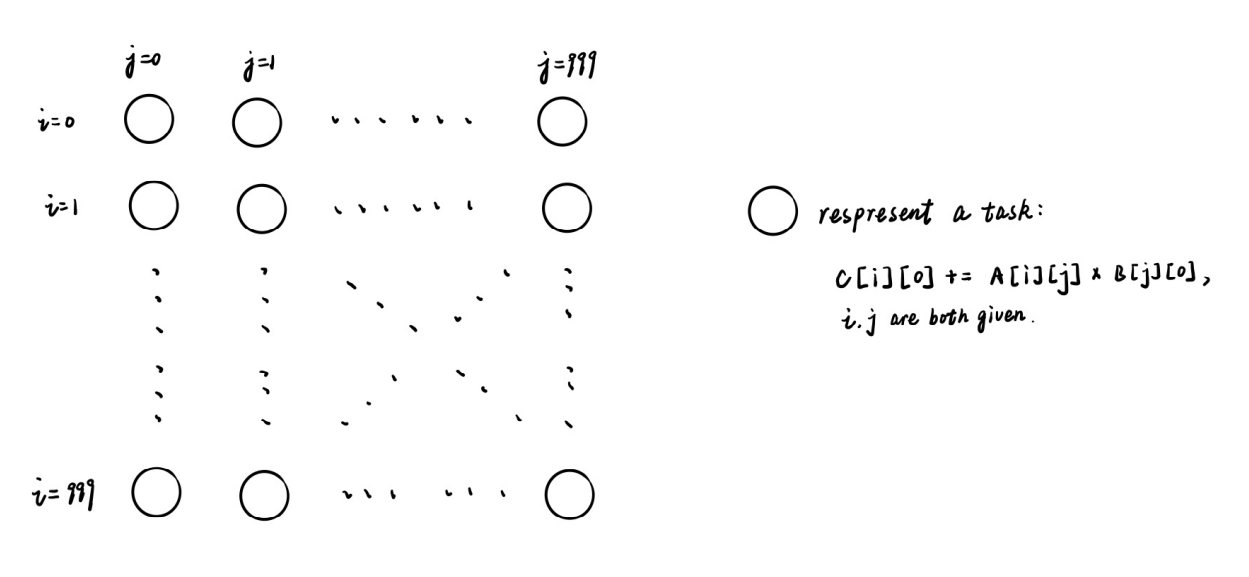 j=0 j=1 j=999
i=0
i=1
respresent a task:
C[i][0] += A[i][j] * B[j][0],
i.j are both given.
i=999